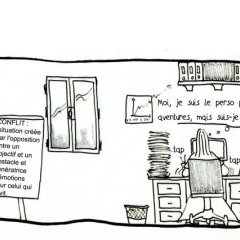 CONFLIT :
situation créée
ar l'opposition
entre un
bjectif et un
bstacle et
énératrice
émotions
our celui qui
vit.
Moi, je suis le perso
aventures, mais suis-je
tap
tap